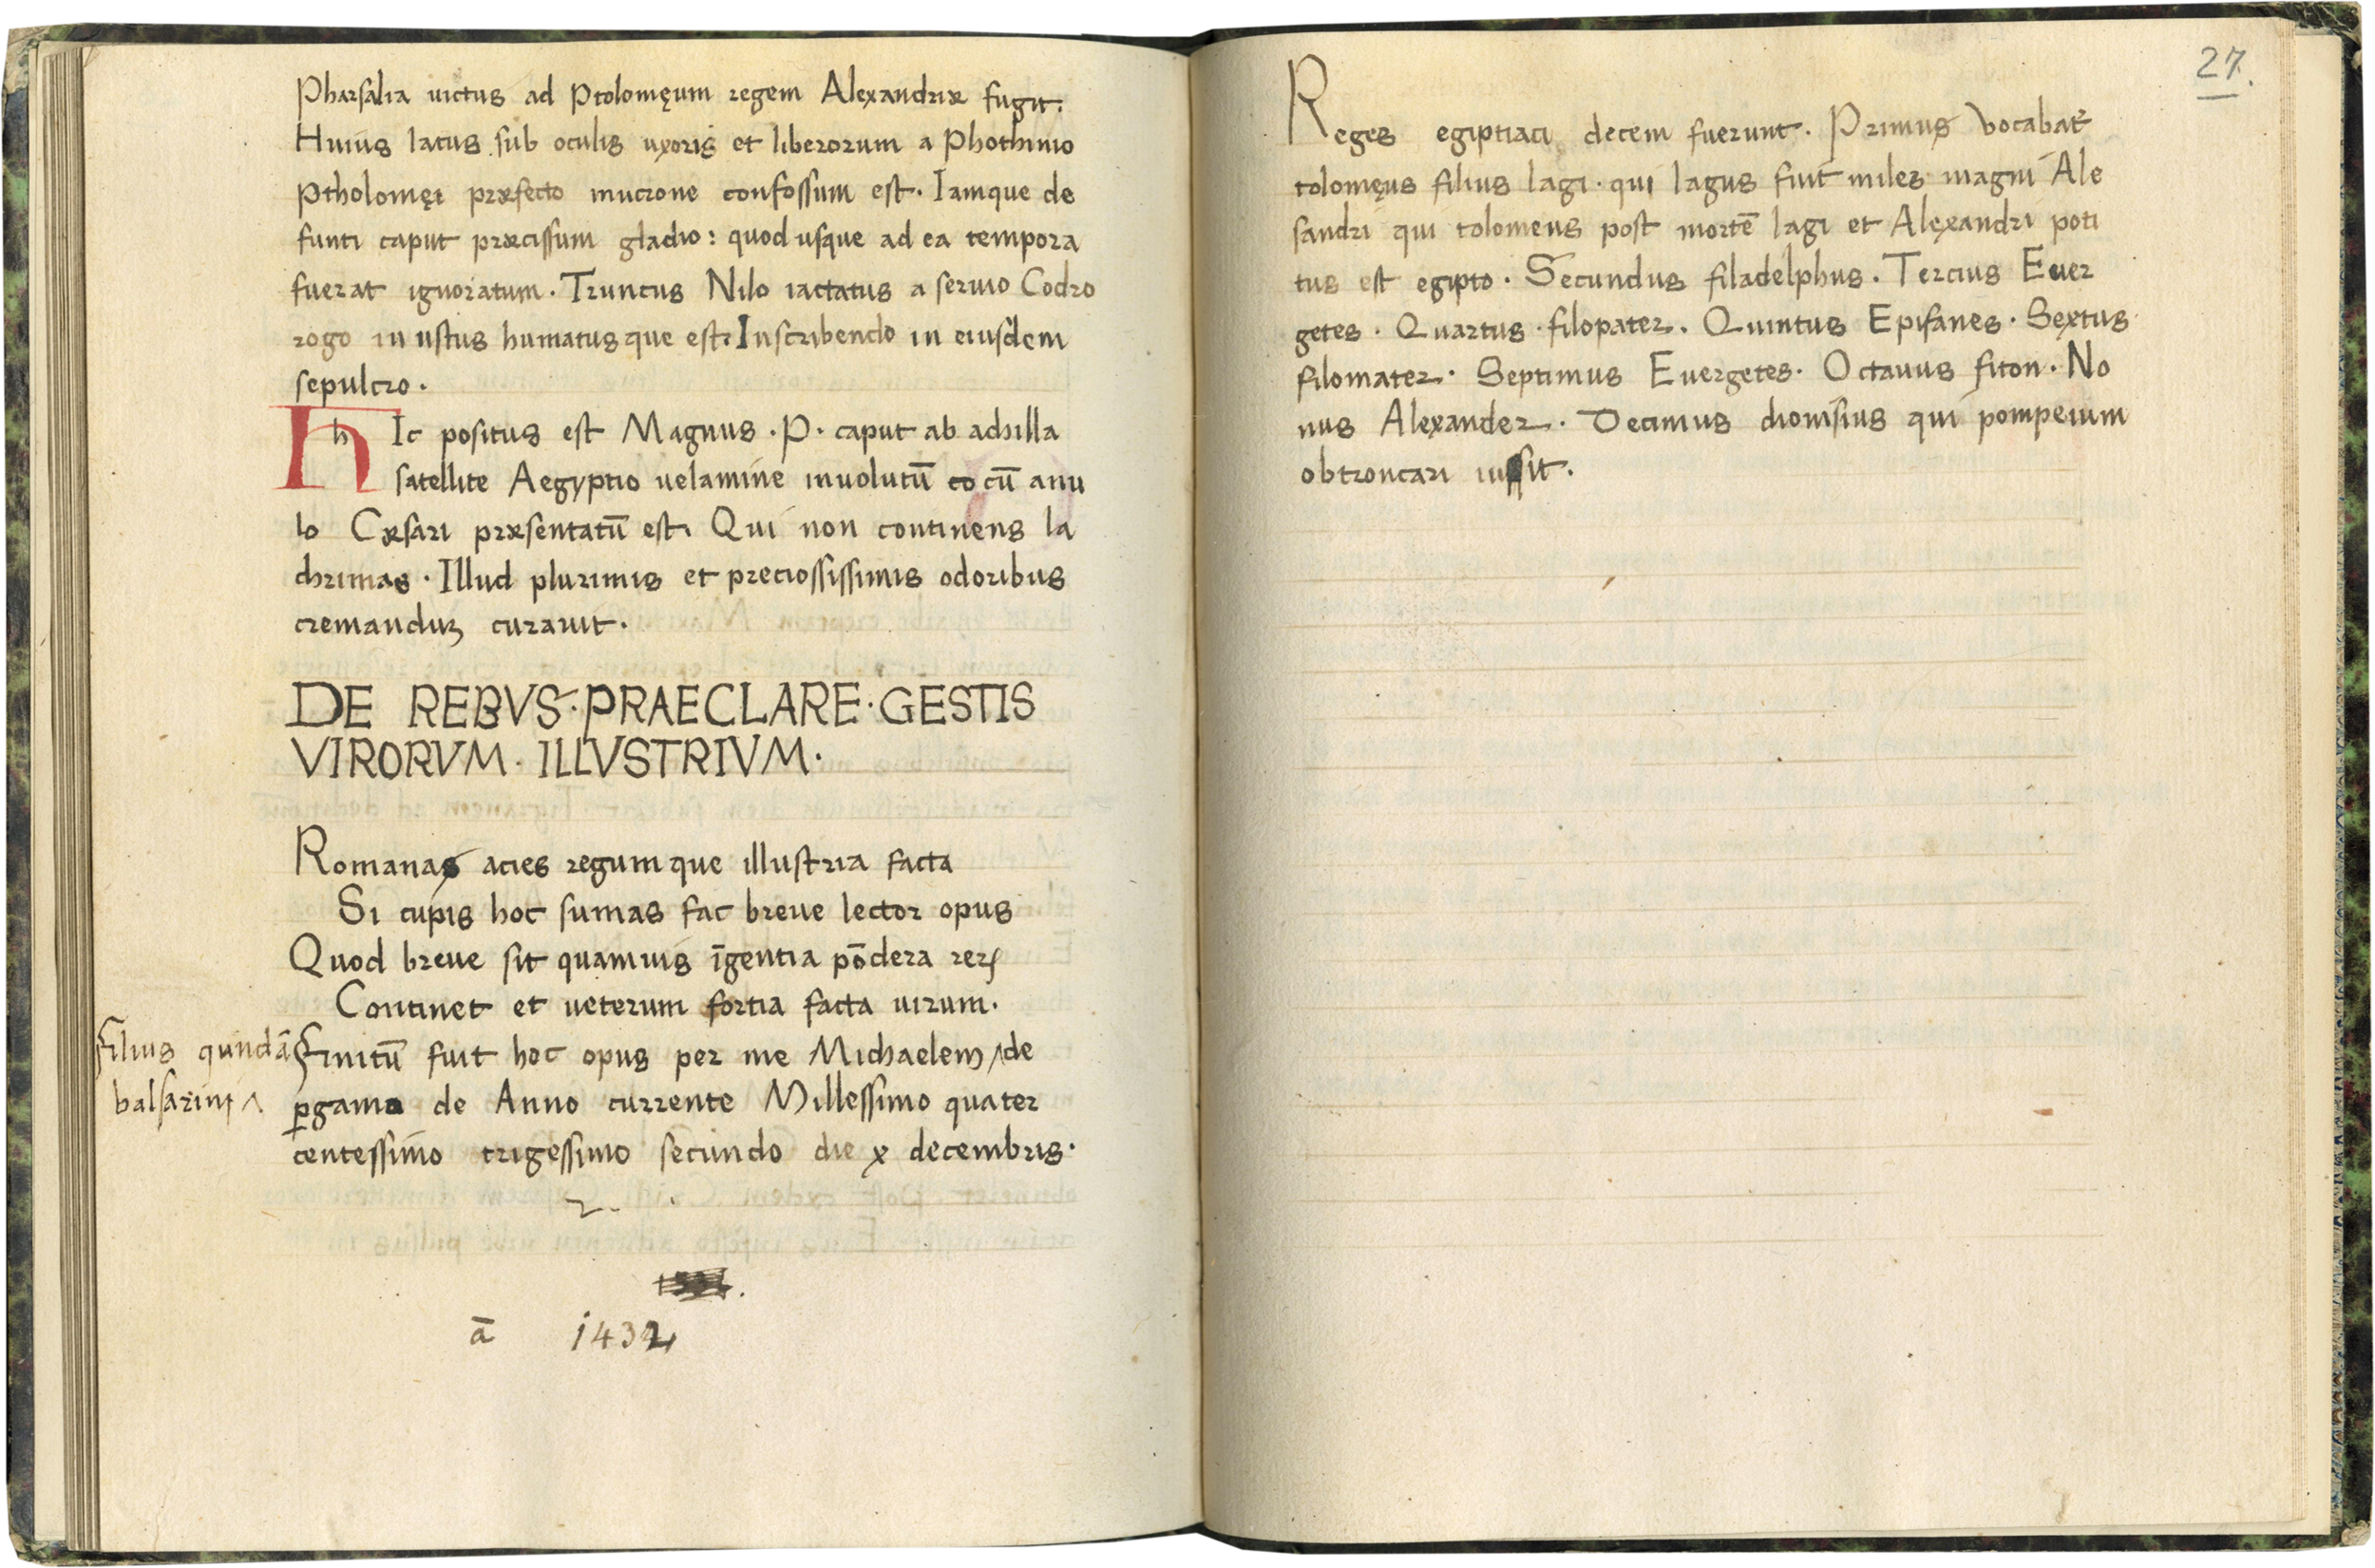 Pharsalia uictus ad Ptolomęum regem Alexandriæ fugit.
Huius latus sub oculis uxoris et liberorum a Phothinio
Ptholomęi præfecto mucrone confossum est. Iamque de
functi caput præcissum gladio: quod usque ad ea tempora
fuerat ignoratum. Truncus Nilo iactatus a seruio Codro
rogo in ustus humatusque est. Inscribendo in eiusdem
sepulcro.
h Ic positus est Magnus. P. caput ab achilla
satellite Aegyptio uelamine inuolutū cū anu
lo Cæsari præsentatū est. Qui non continens la
chrimas. Illud plurimis et preciossissimis odoribus
cremanduȝ curauit.
DE REBVS·PRAECLARE·GESTIS
VIRORVM·ILLVSTRIVM·
Romanas acies regumque illustria facta
Si cupis hoc sumas fac breue lector opus
Quod breue sit quamuis īgentia pōdera reꝝ
Continet et ueterum fortia facta uirum.
filius qundā
balsarini ^
Finitū fuit hoc opus per me Michaelem ^ de
ꝑgamo de Anno currente Millessimo quater
centessimo trigessimo secundo die x decembris.
ā 1432
27.
Reges egiptiaci decem fuerunt. Primus vocabat᷑
tolomęus filius lagi. qui lagus fuit miles magni Ale
sandri qui tolomeus post mortē lagi et Alexandri poti
tus est egipto. Secundus filadelphus. Tercius Euer
getes. Quartus. filopater. Quintus Epifanes. Sextus
filomater. Septimus Euergetes. Octauus fiton. No
nus Alexander. Decimus dionisius qui pompeium
obtroncari iussit.